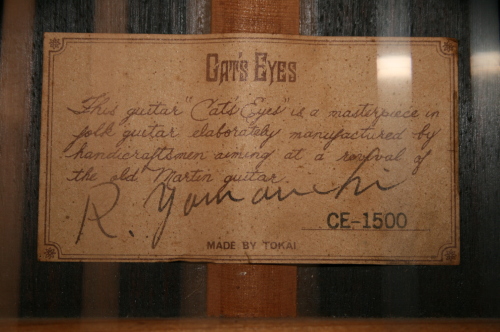 CAT'S EYES
This guitar "Cat's Eyes" is a masterpiece in
folk guitar elaborately manufactured by
handicraftsmen aiming at a revival of
the old Martin guitar.
R. Yamauchi
CE-1500
MADE BY TOKAI